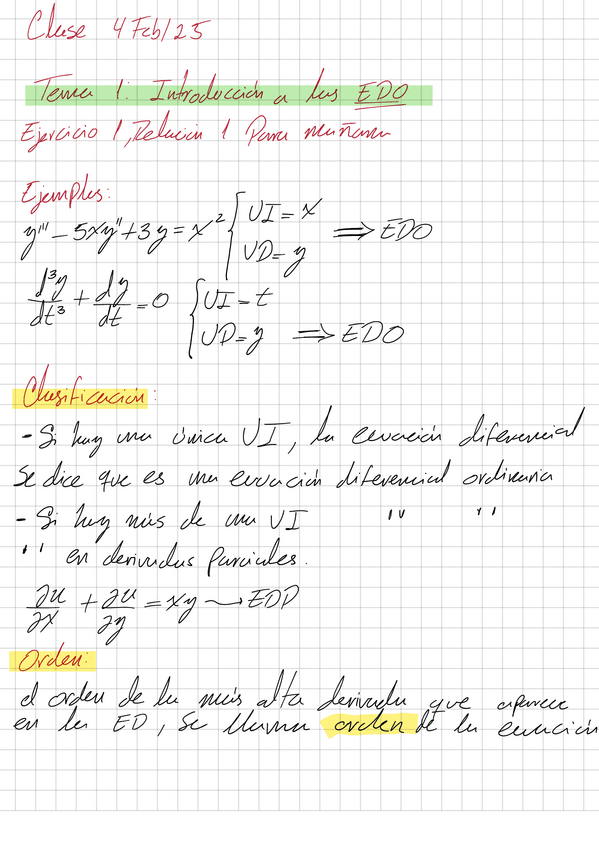 Clase 4 Feb/25
Tema 1: Introducción a las EDO
Ejercicio 1, Relación 1 Para mañana
Ejemplos:
y''' - 5xy'' + 3y = x² { VI = x
VD = y ⟹ EDO
d³y/dt³ + dy/dt = 0 { VI = t
VD = y ⟹ EDO
Clasificación:
- Si hay una única VI, la ecuación diferencial
se dice que es una ecuación diferencial ordinaria
- Si hay más de una VI '' ''
'' en derivadas parciales.
∂u/∂x + ∂u/∂y = xy → EDP
Orden:
el orden de la más alta derivada que aparece
en la ED, se llama orden de la ecuación